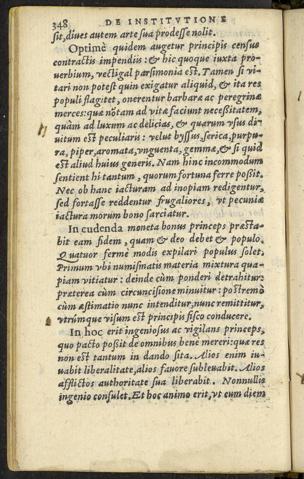 348 DE INSTITVTIONE
sit, diues autem arte sua prodesse nolit.
Optimè quidem augetur principis census
contractis impendiis: & hic quoque iuxta pro-
uerbium, vectigal parsimonia est. Tamen si vi-
tari non potest quin exigatur aliquid, & ita res
populi flagitet, onerentur barbaræ ac peregrinæ
merces: quæ nõtam ad vitæ faciunt necessitatem,
quàm ad luxum ac delicias, & quarum vsus di-
uitum est peculiaris: velut byssus, serica, purpu-
ra, piper, aromata, vnguenta, gemmæ, & si quid
est aliud huius generis. Nam hinc incommodum
sentient hi tantum, quorum fortuna ferre possit.
Nec ob hanc iacturam ad inopiam redigentur,
sed fortasse reddentur frugaliores, vt pecuniæ
iactura morum bono sarciatur.
In cudenda moneta bonus princeps præsta-
bit eam fidem, quam & deo debet & populo.
Quatuor fermè modis expilari populus solet.
Primum vbi numismatis materia mixtura qua-
piam vitiatur: deinde cùm ponderi detrahitur:
præterea cùm circuncisione minuitur: postremò
cùm æstimatio nunc intenditur, nunc remittitur,
vtrũmque visum est principis fisco conducere.
In hoc erit ingeniosus ac vigilans princeps,
quo pacto possit de omnibus bene mereri: quæ res
non est tantum in dando sita. Alios enim iu-
uabit liberalitate, alios fauore subleuabit. Alios
afflictos authoritate sua liberabit. Nonnullis
ingenio consulet. Et hoc animo erit, vt eum diem